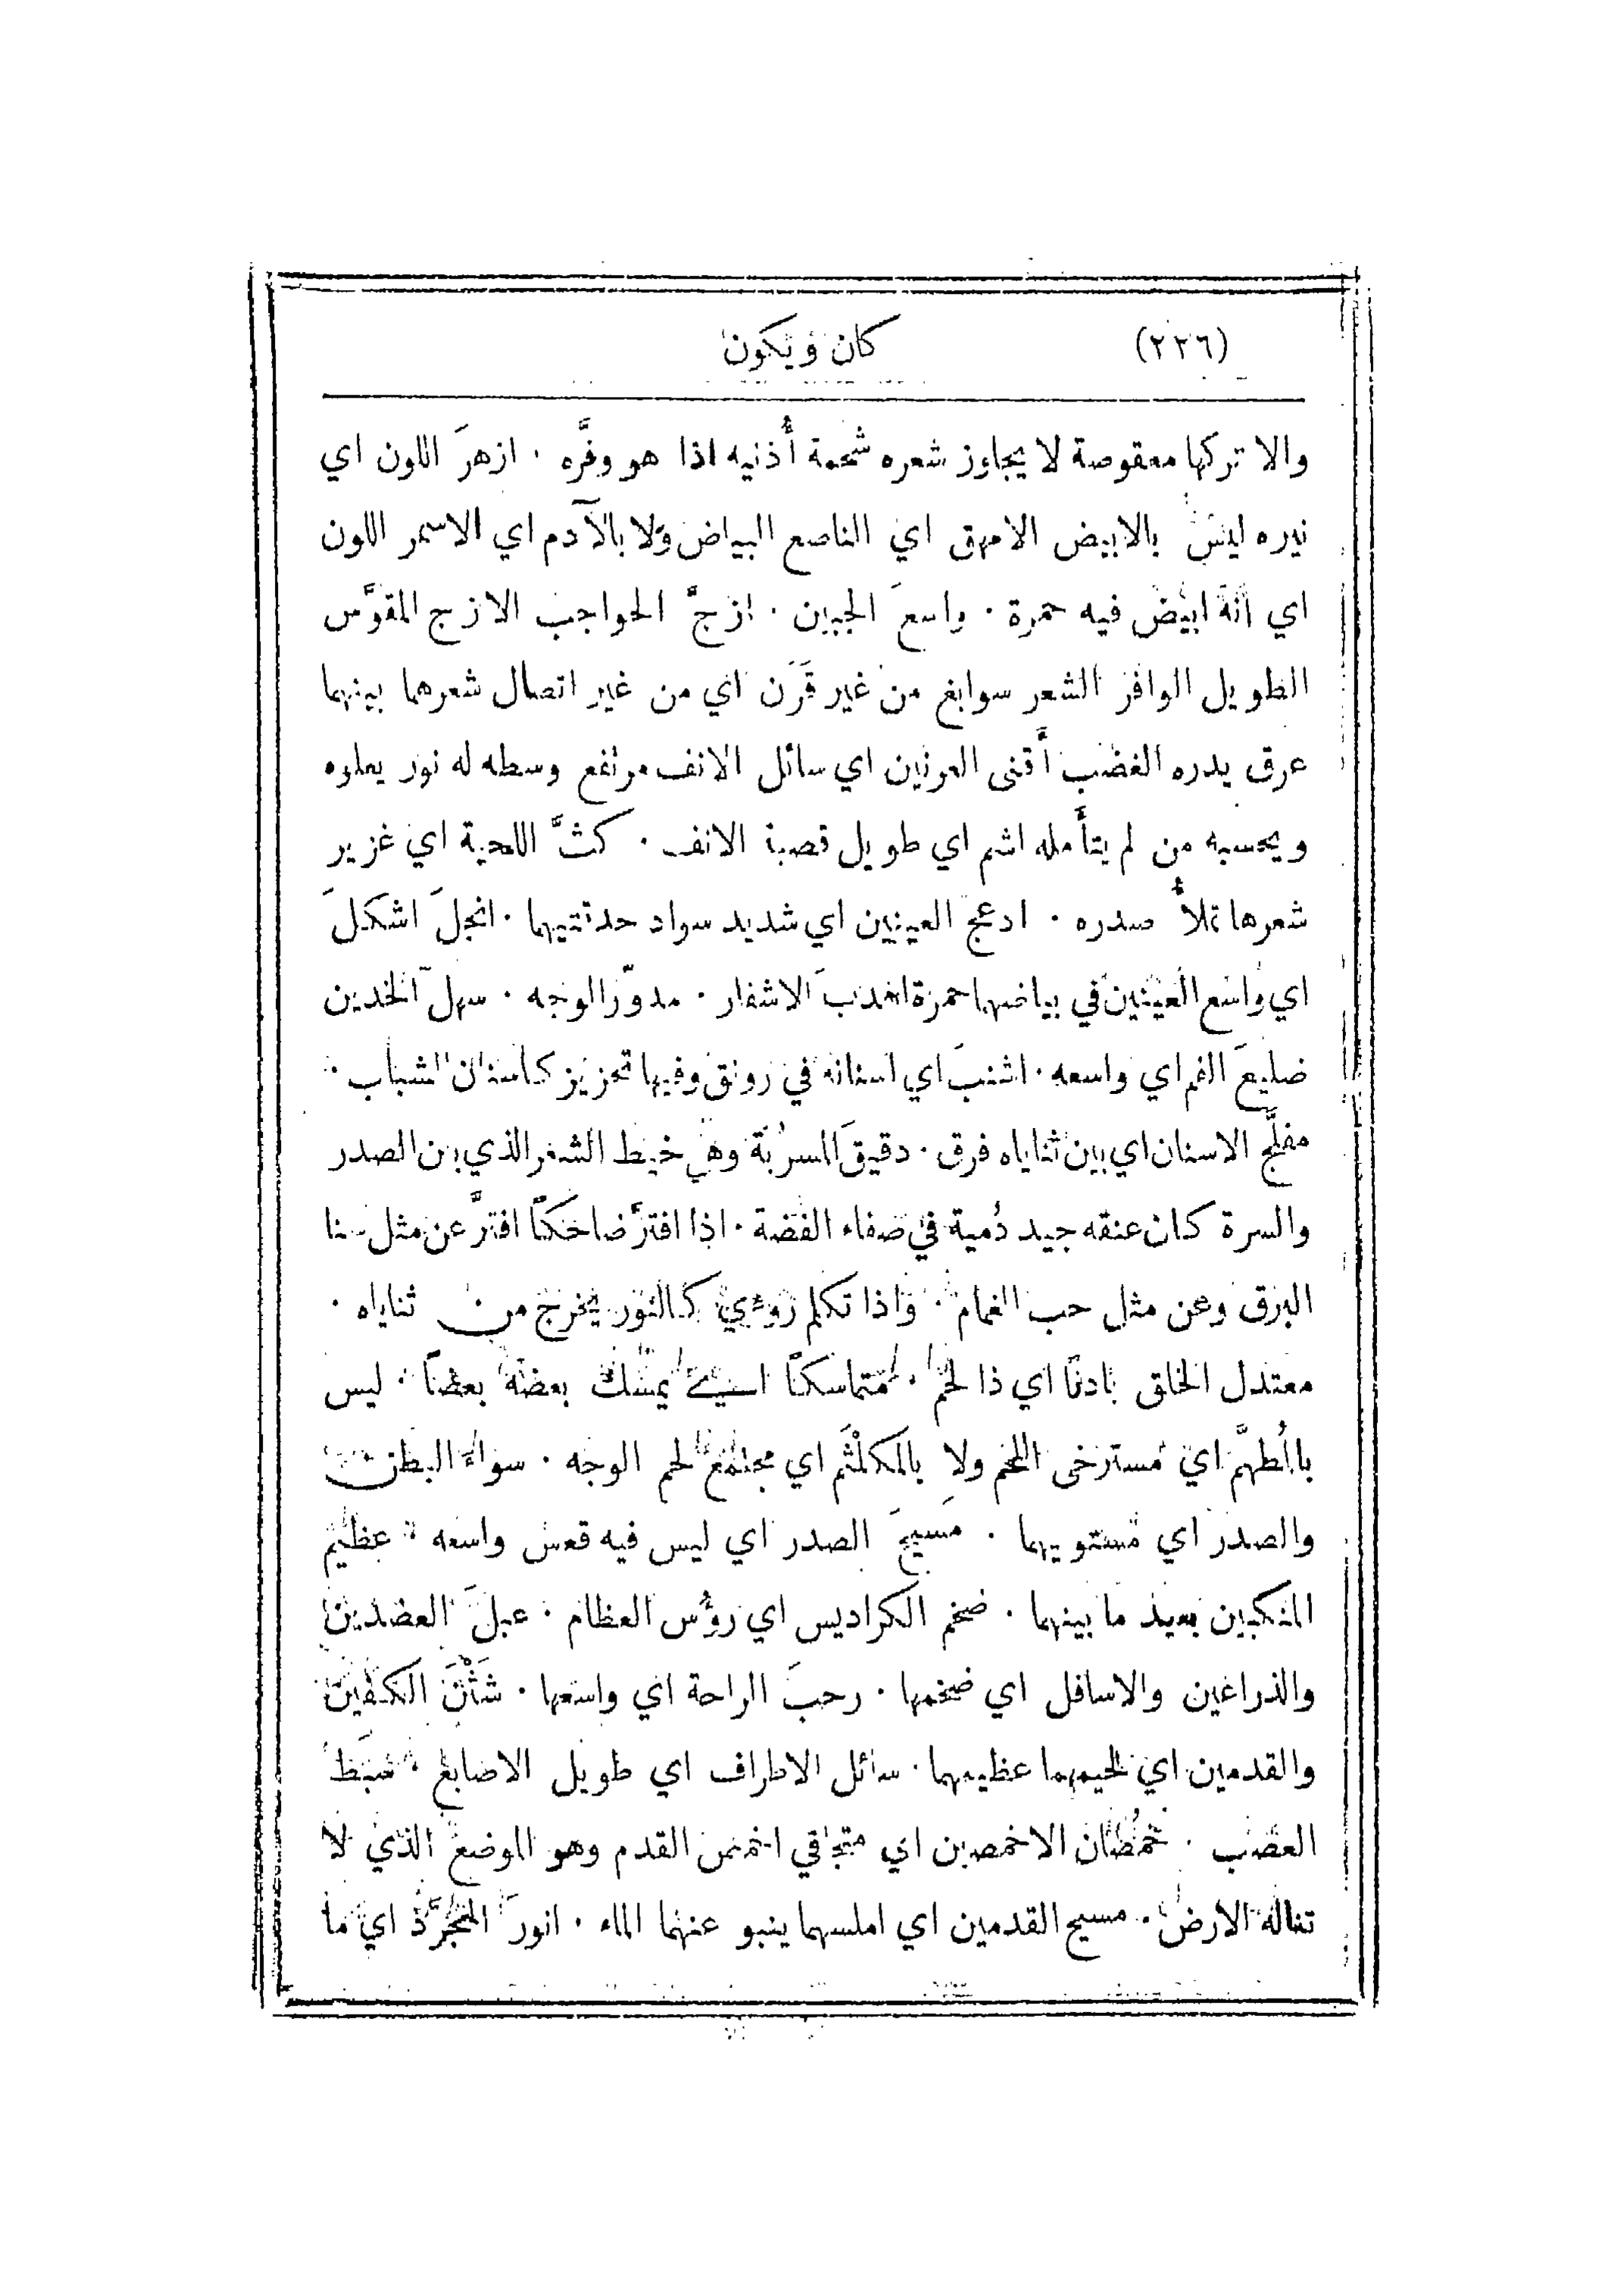 (٢٢٦) كان ويكون
والا تركها معقوصة لا يجاوز شعره شحمة أُذنيه اذا هو وفَّره . ازهرَ اللون اي
نيره ليس بالابيض الامهق اي الناصع البياض ولا بالآدم اي الاسمر اللون
اي انه ابيض فيه حمرة . واسعَ الجبين . ازجَّ الحواجب الازج المقوَّس
الطويل الوافر الشعر سوابغ من غير قَرَن اي من غير اتصال شعرهما بينهما
عرق يدره الغضب أَقنى العرنين اي سائل الانف مرتفع وسطه له نور يعلوه
ويحسبه من لم يتأَمله اشم اي طويل قصبة الانف . كثَّ اللحية اي غزير
شعرها تملأُ صدره . ادعج العينين اي شديد سواد حدقتيهما . انجلَ اشكلَ
اي واسع العينين في بياضهما حمرة اهدبَ الاشفار . مدوّر الوجه . سهلَ الخدين
ضليعَ الفم اي واسعه . اشنبَ اي اسنانه في رونق وفيها تحزيز كاسنان الشباب .
مفلَّج الاسنان اي بين ثناياه فرق . دقيقَ المسرُبَة وهي خيط الشعر الذي بين الصدر
والسرة كان عنقه جيد دُمية في صفاء الفضة . اذا افترَّ ضاحكًا افترَّ عن مثل سنا
البرق وعن مثل حب الغمام . واذا تكلم رؤي كالنور يخرج من ثناياه .
معتدل الخلق بادنًا اي ذا لحم . متماسكًا اي يمسك بعضه بعضًا . ليس
بالمُطهَّم اي مسترخي اللحم ولا بالمكَلْثَم اي مجتمع لحم الوجه . سواءَ البطن
والصدر اي مستويهما . مَسيحَ الصدر اي ليس فيه قعس واسعه . عظيم
المنكبين بعيد ما بينهما . ضخم الكراديس اي رؤُس العظام . عبلَ العضدين
والذراعين والاسافل اي ضخمها . رحبَ الراحة اي واسعها . شَثْنَ الكفين
والقدمين اي لحيمهما عظيمهما . سائل الاطراف اي طويل الاصابع . سَبَط
العصب . خُمصان الاخمصين اي متجافي اخمص القدم وهو الموضع الذي لا
تناله الارض . مسيح القدمين اي املسهما ينبو عنهما الماء . انورَ المتجرَّد اي ما